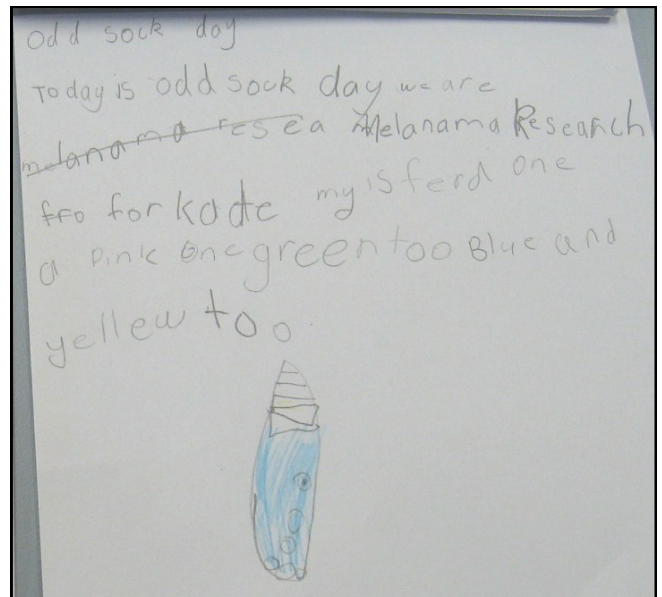 Odd sock day
Today is odd sock day we are
melanama resea Melanama Research
ffo for kate my is ferd one
a pink one green too Blue and
yellew too